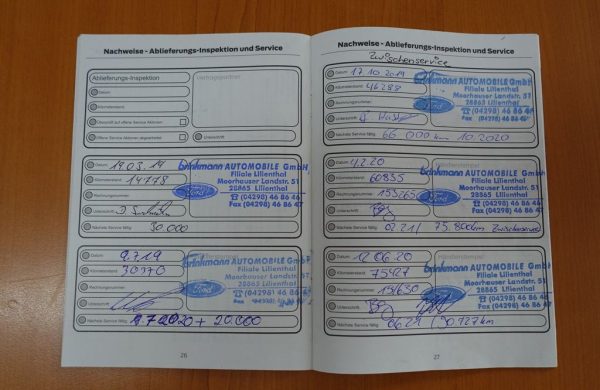 Nachweise - Ablieferungs-Inspektion und Service
Ablieferungs-Inspektion
Vertragspartner
Datum
Kilometerstand
Überprüft auf offene Service Aktionen
Offene Service Aktionen abgearbeitet
Unterschrift
Datum 19.03.19
Kilometerstand 14778
Rechnungsnummer
Unterschrift
Nächste Service fällig 30.000
Brinkmann AUTOMOBILE GmbH
Filiale Lilienthal
Moorhauser Landstr. 51
28865 Lilienthal
Ford
☎ (04298) 46 86 46
Fax (04298) 46 86 47
Datum 9.7.19
Kilometerstand 30370
Rechnungsnummer
Unterschrift
Nächste Service fällig 9.7.2020 + 20.000
Brinkmann AUTOMOBILE GmbH
Filiale Lilienthal
Moorhauser Landstr. 51
28865 Lilienthal
Ford
☎ (04298) 46 86 46
Fax (04298) 46 86 47
26
Nachweise - Ablieferungs-Inspektion und Service
Zwischenservice
Datum 17.10.2019
Kilometerstand 46288
Rechnungsnummer
Unterschrift
Nächste Service fällig 66 000 km 10.2020
Brinkmann AUTOMOBILE GmbH
Filiale Lilienthal
Moorhauser Landstr. 51
28865 Lilienthal
Ford
☎ (04298) 46 86 46
Fax (04298) 46 86
Datum 4.2.20
Kilometerstand 60835
Rechnungsnummer 153265
Unterschrift
Nächste Service fällig 02.21/ 75.800km Zwischenservice
Händlerstempel
Brinkmann AUTOMOBILE GmbH
Filiale Lilienthal
Moorhauser Landstr. 51
28865 Lilienthal
Ford
☎ (04298) 46 86 46
Fax (04298) 46 86
Datum 12.06.20
Kilometerstand 75927
Rechnungsnummer 154630
Unterschrift
Nächste Service fällig 06.21 / 90.927km
Händlerstempel
Brinkmann AUTOMOBILE GmbH
Filiale Lilienthal
Moorhauser Landstr. 51
28865 Lilienthal
Ford
☎ (04298) 46 86 46
Fax (04298) 46 86 47
27